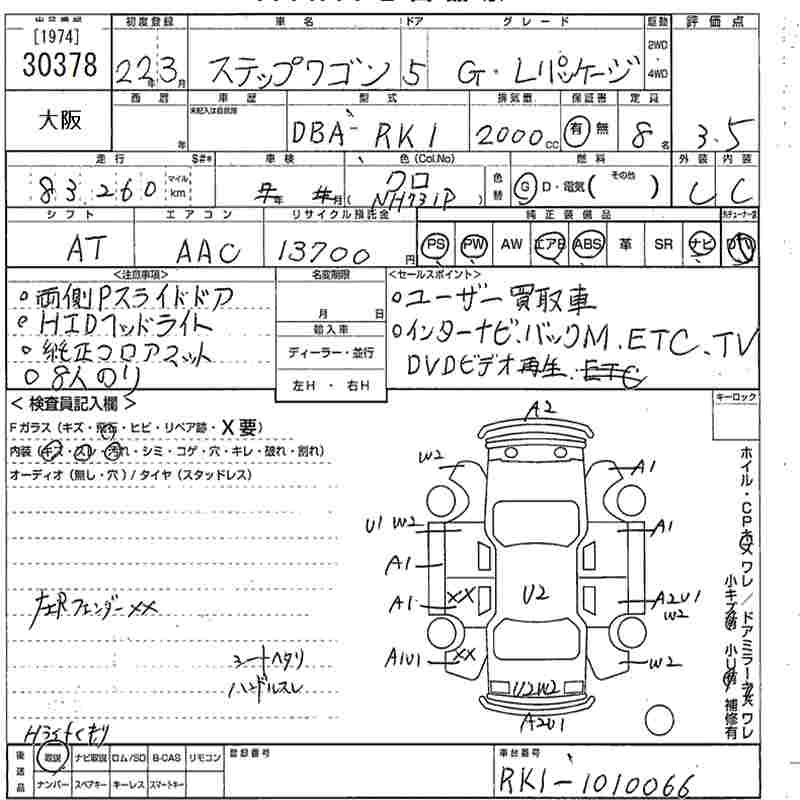 [1974]
30378
大阪
初度登録
22年3月
車名
ステップワゴン
ドア
5
グレード
G・Lパッケージ
駆動
2WD
・
4WD
評価点
3.5
西暦
年
車歴
未記入は自家用
型式
DBA-RK1
排気量
2000cc
保証書
有 無
定員
8名
走行
S#*
83,260
マイル
km
車検
年 月
色(Col.No)
クロ
NH731P
色替
燃料
G・D・電気( その他 )
外装 内装
C C
シフト
AT
エアコン
AAC
リサイクル預託金
13700円
純正装備品
PS PW AW エアB ABS 革 SR ナビ
<注意事項>
○両側Pスライドドア
○HIDヘッドライト
○純正フロアマット
○8人のり
名変期限
月 日
輸入車
ディーラー・並行
左H ・ 右H
<セールスポイント>
○ユーザー買取車
○インターナビ.バックM.ETC.TV
DVDビデオ再生.
キーロック
< 検査員記入欄 >
Fガラス(キズ・飛石・ヒビ・リペア跡・X要)
内装(キズ・スレ・汚れ・シミ・コゲ・穴・キレ・破れ・割れ)
オーディオ(無し・穴)/タイヤ(スタッドレス)
左Rフェンダーxx
シートヘタリ
ハンドルスレ
Hライトくもり
A2
W2
A1
U1 W2
A1
A1
A1
XX
U2
A2U1
W2
A1U1
XX
W2
U2W2
A2U1
後送品
取説 ナビ取説 ロム/SD B-CAS リモコン
ナンバー スペアキー キーレス スマートキー
登録番号
車台番号
RK1-1010066